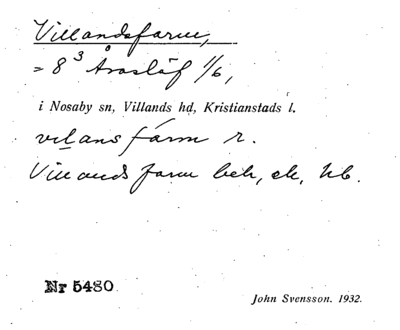 Villandsfarm,
= 8³ Åraslöf 1/6,
i Nosaby sn, Villands hd, Kristianstads l.
vilans farm r.
Villands farm beh, ek, kb.
Nr 5480
John Svensson. 1932.